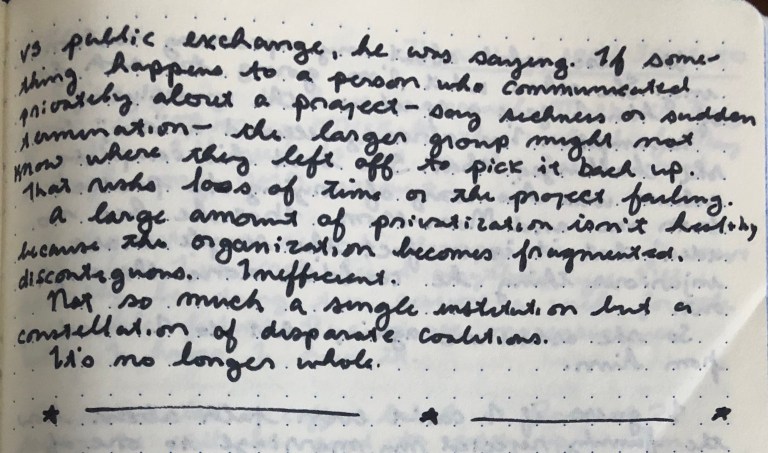 vs public exchange, he was saying. If some-
thing happens to a person who communicated
privately about a project - say sickness or sudden
termination - the larger group might not
know where they left off to pick it back up.
That risks loss of time or the project failing.
A large amount of privatization isn't healthy
because the organization becomes fragmented.
discontiguous. Inefficient.
Not so much a single institution but a
constellation of disparate coalitions.
It's no longer whole.